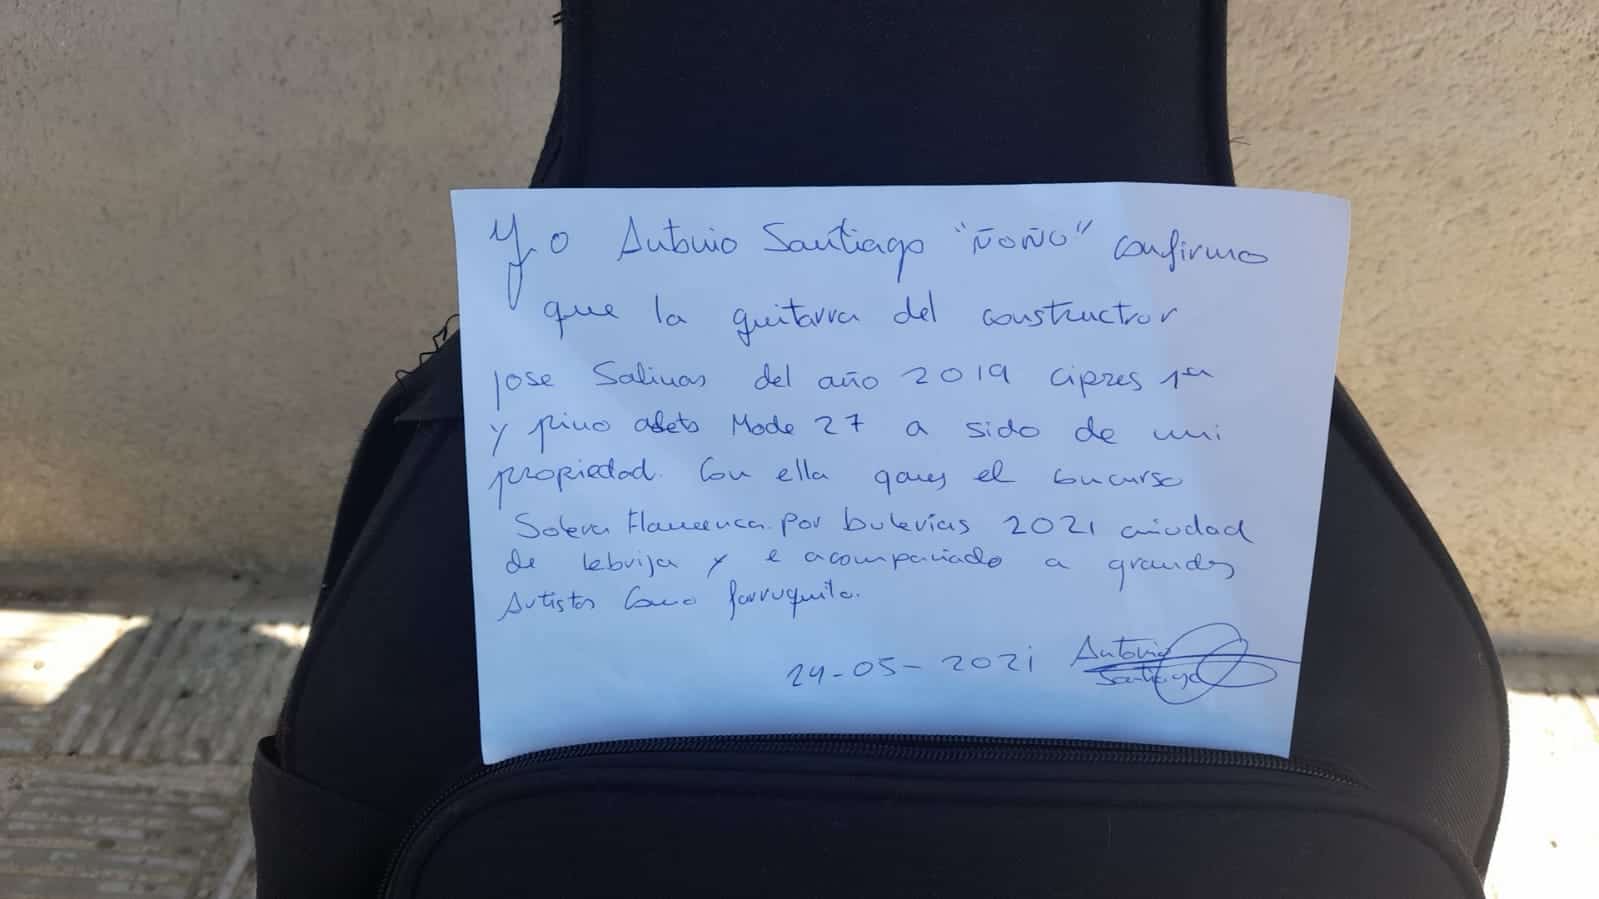 Yo Antonio Santiago "ÑOÑO" confirmo
que la guitarra del constructror
jose Salinas del año 2019 cipres 1ª
y pino abeto Mode 27 a sido de mi
propiedad. Con ella gane el concurso
Solera Flamenca por bulerias 2021 ciudad
de lebrija y e acompañado a grandes
Artistas Como farruquito.
24-05-2021 Antonio
Santiago